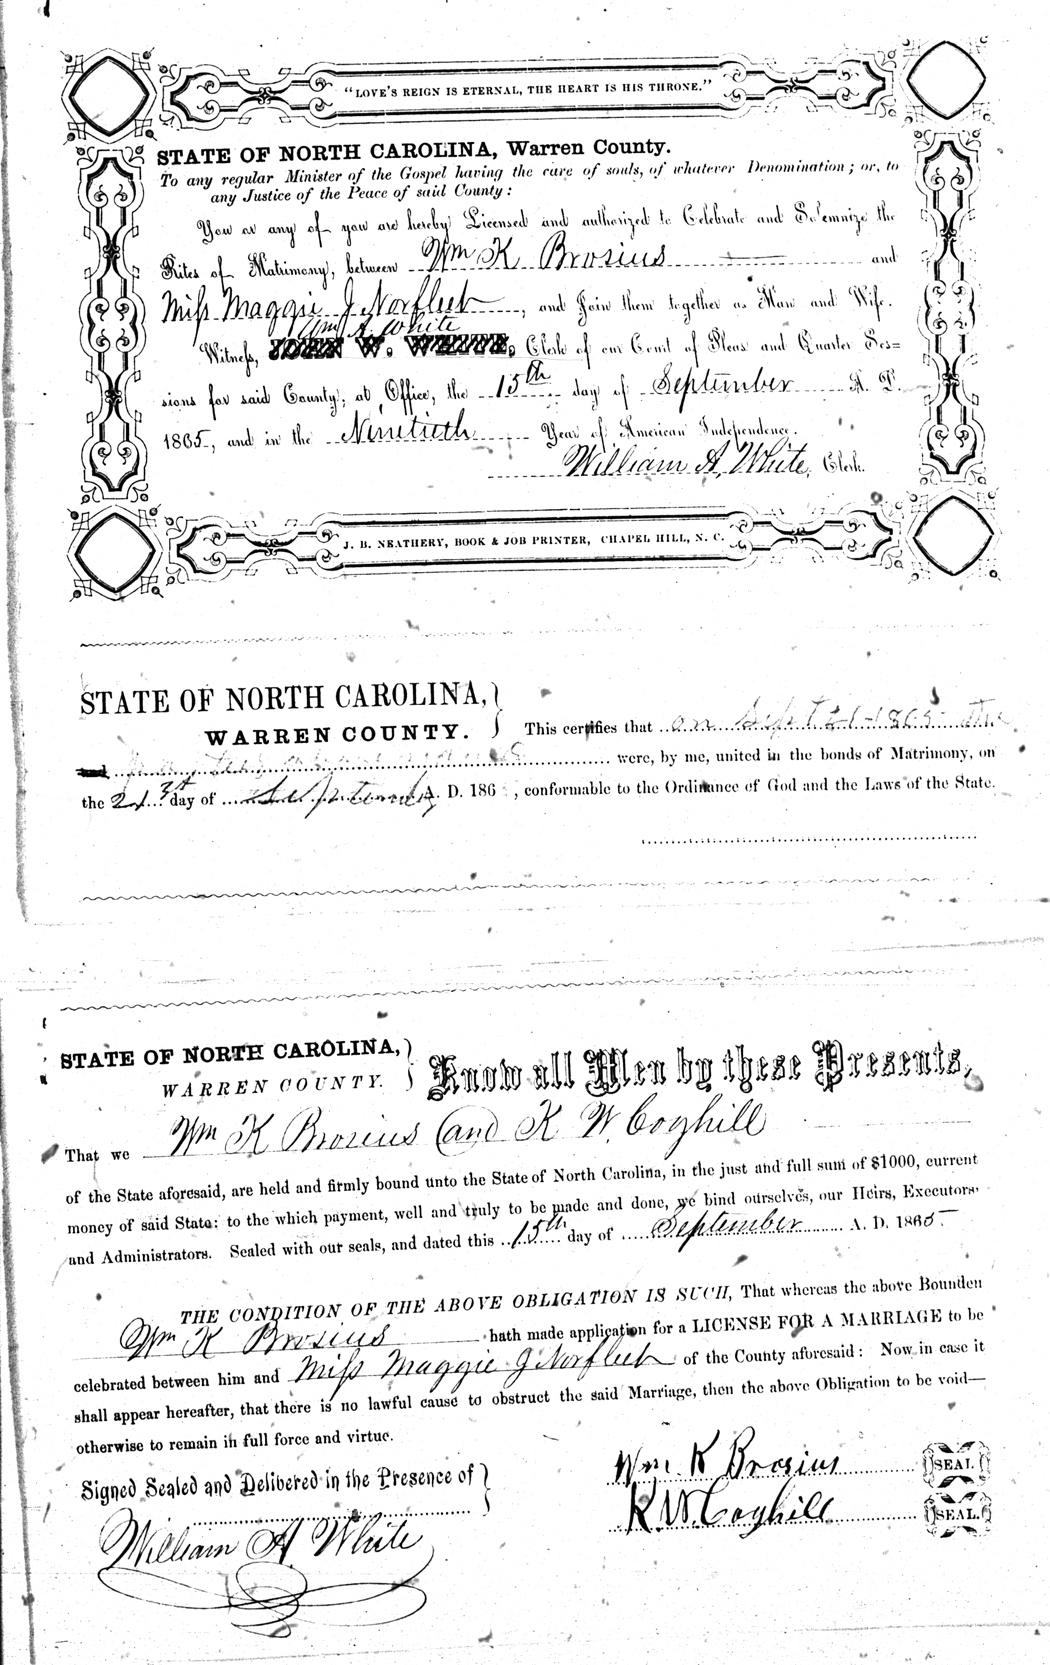 "LOVE'S REIGN IS ETERNAL, THE HEART IS HIS THRONE."
STATE OF NORTH CAROLINA, Warren County.
To any regular Minister of the Gospel having the care of souls, of whatever Denomination; or, to
any Justice of the Peace of said County:
You or any of you are hereby Licensed and authorized to Celebrate and Solemnize the
Rites of Matrimony, between Wm K Brosius and
Miss Maggie J Norfleet, and Join them together as Man and Wife.
Wm A. White
Witness, JOHN W. WHITE, Clerk of our Court of Pleas and Quarter Ses=
sions for said County, at Office, the 15th day of September A. D.
1865, and in the Ninetieth Year of American Independence.
William A. White, Clerk.
J. B. NEATHERY, BOOK & JOB PRINTER, CHAPEL HILL, N. C.
STATE OF NORTH CAROLINA,
WARREN COUNTY.
This certifies that on Sept 21 1865 the
and were, by me, united in the bonds of Matrimony, on
the 21st day of September A. D. 186 , conformable to the Ordinance of God and the Laws of the State.
STATE OF NORTH CAROLINA,
WARREN COUNTY.
Know all Men by these Presents,
That we Wm K Brosius and K W. Coghill
of the State aforesaid, are held and firmly bound unto the State of North Carolina, in the just and full sum of $1000, current
money of said State: to the which payment, well and truly to be made and done, we bind ourselves, our Heirs, Executors
and Administrators. Sealed with our seals, and dated this 15th day of September A. D. 1865.
THE CONDITION OF THE ABOVE OBLIGATION IS SUCH, That whereas the above Bounden
Wm K Brosius hath made application for a LICENSE FOR A MARRIAGE to be
celebrated between him and Miss Maggie J Norfleet of the County aforesaid: Now in case it
shall appear hereafter, that there is no lawful cause to obstruct the said Marriage, then the above Obligation to be void—
otherwise to remain in full force and virtue.
Signed Sealed and Delivered in the Presence of
William A White
Wm. K Brosius SEAL
K. W. Coghill SEAL.